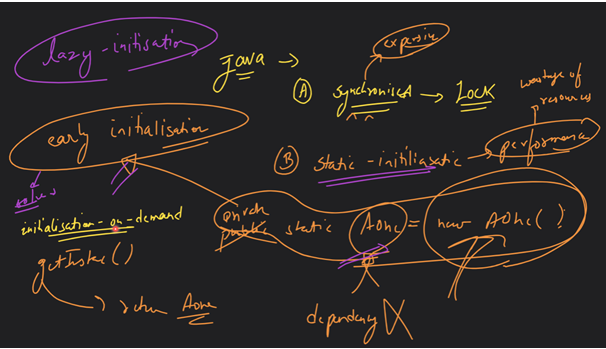 lazy-initisation
Java →
expensive
Ⓐ synchronised → LOCK
wastage of
resources
early initialisation
Ⓑ static-initiliasatic → performance
initialisation-on-demand
public static Aonc = new AOnc()
()
→ return Aonc
dependency